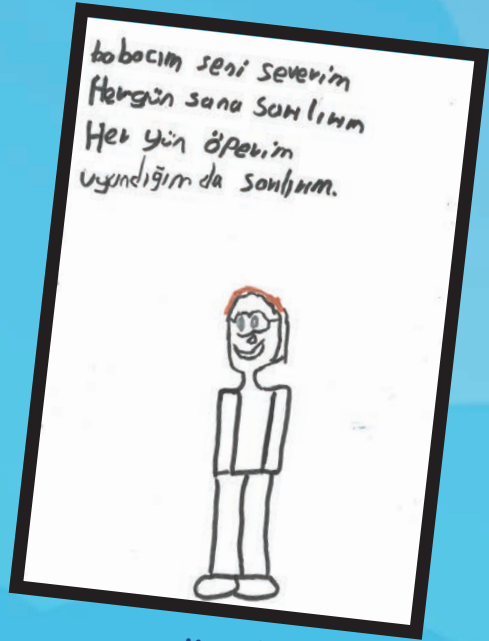 babacım seni severim
Hergün sana sarılırım
Her gün öperim
uyandığımda sarılırım.